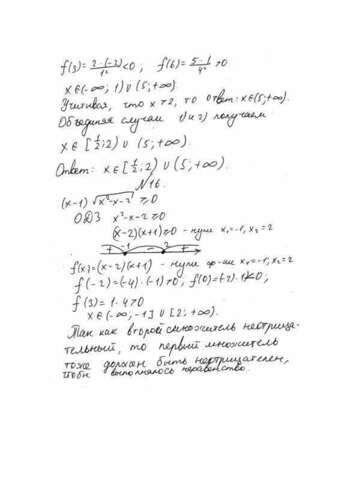 f(3)= 2·(-2)/1² <0; f(6)= 5·1/4² >0
x∈(-∞; 1) ∪ (5; +∞).
Учитывая, что x>2, то ответ: x∈(5; +∞).
Объединяя случаи 1) и 2) получаем
x∈[1/2; 2) ∪ (5; +∞).
Ответ: x∈[1/2; 2) ∪ (5; +∞).
№16.
(x-1) √x²-x-2 ≥0
ОДЗ x²-x-2≥0
(x-2)(x+1)≥0 - нули x₁=-1; x₂=2
+ -1 - 2 +
f(x)=(x-2)(x+1) - нули ф-ии x₁=-1; x₂=2
f(-2)=(-4)·(-1)>0, f(0)=(-2)·1<0;
f(3)=1·4>0
x∈(-∞; -1] ∪ [2; +∞).
Так как второй множитель неотрица-
тельный, то первый множитель
тоже должен быть неотрицателен,
чтобы выполнялось неравенство.